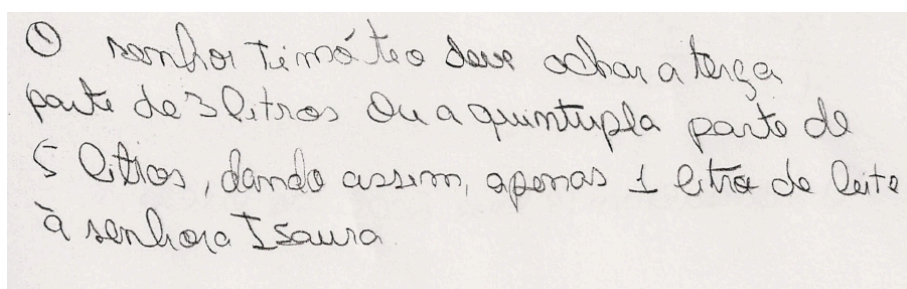 O senhor Timóteo deve achar a terça
parte de 3 litros Ou a quintupla parte de
5 litros, dando assim, apenas 1 litro de leite
à senhora Isaura